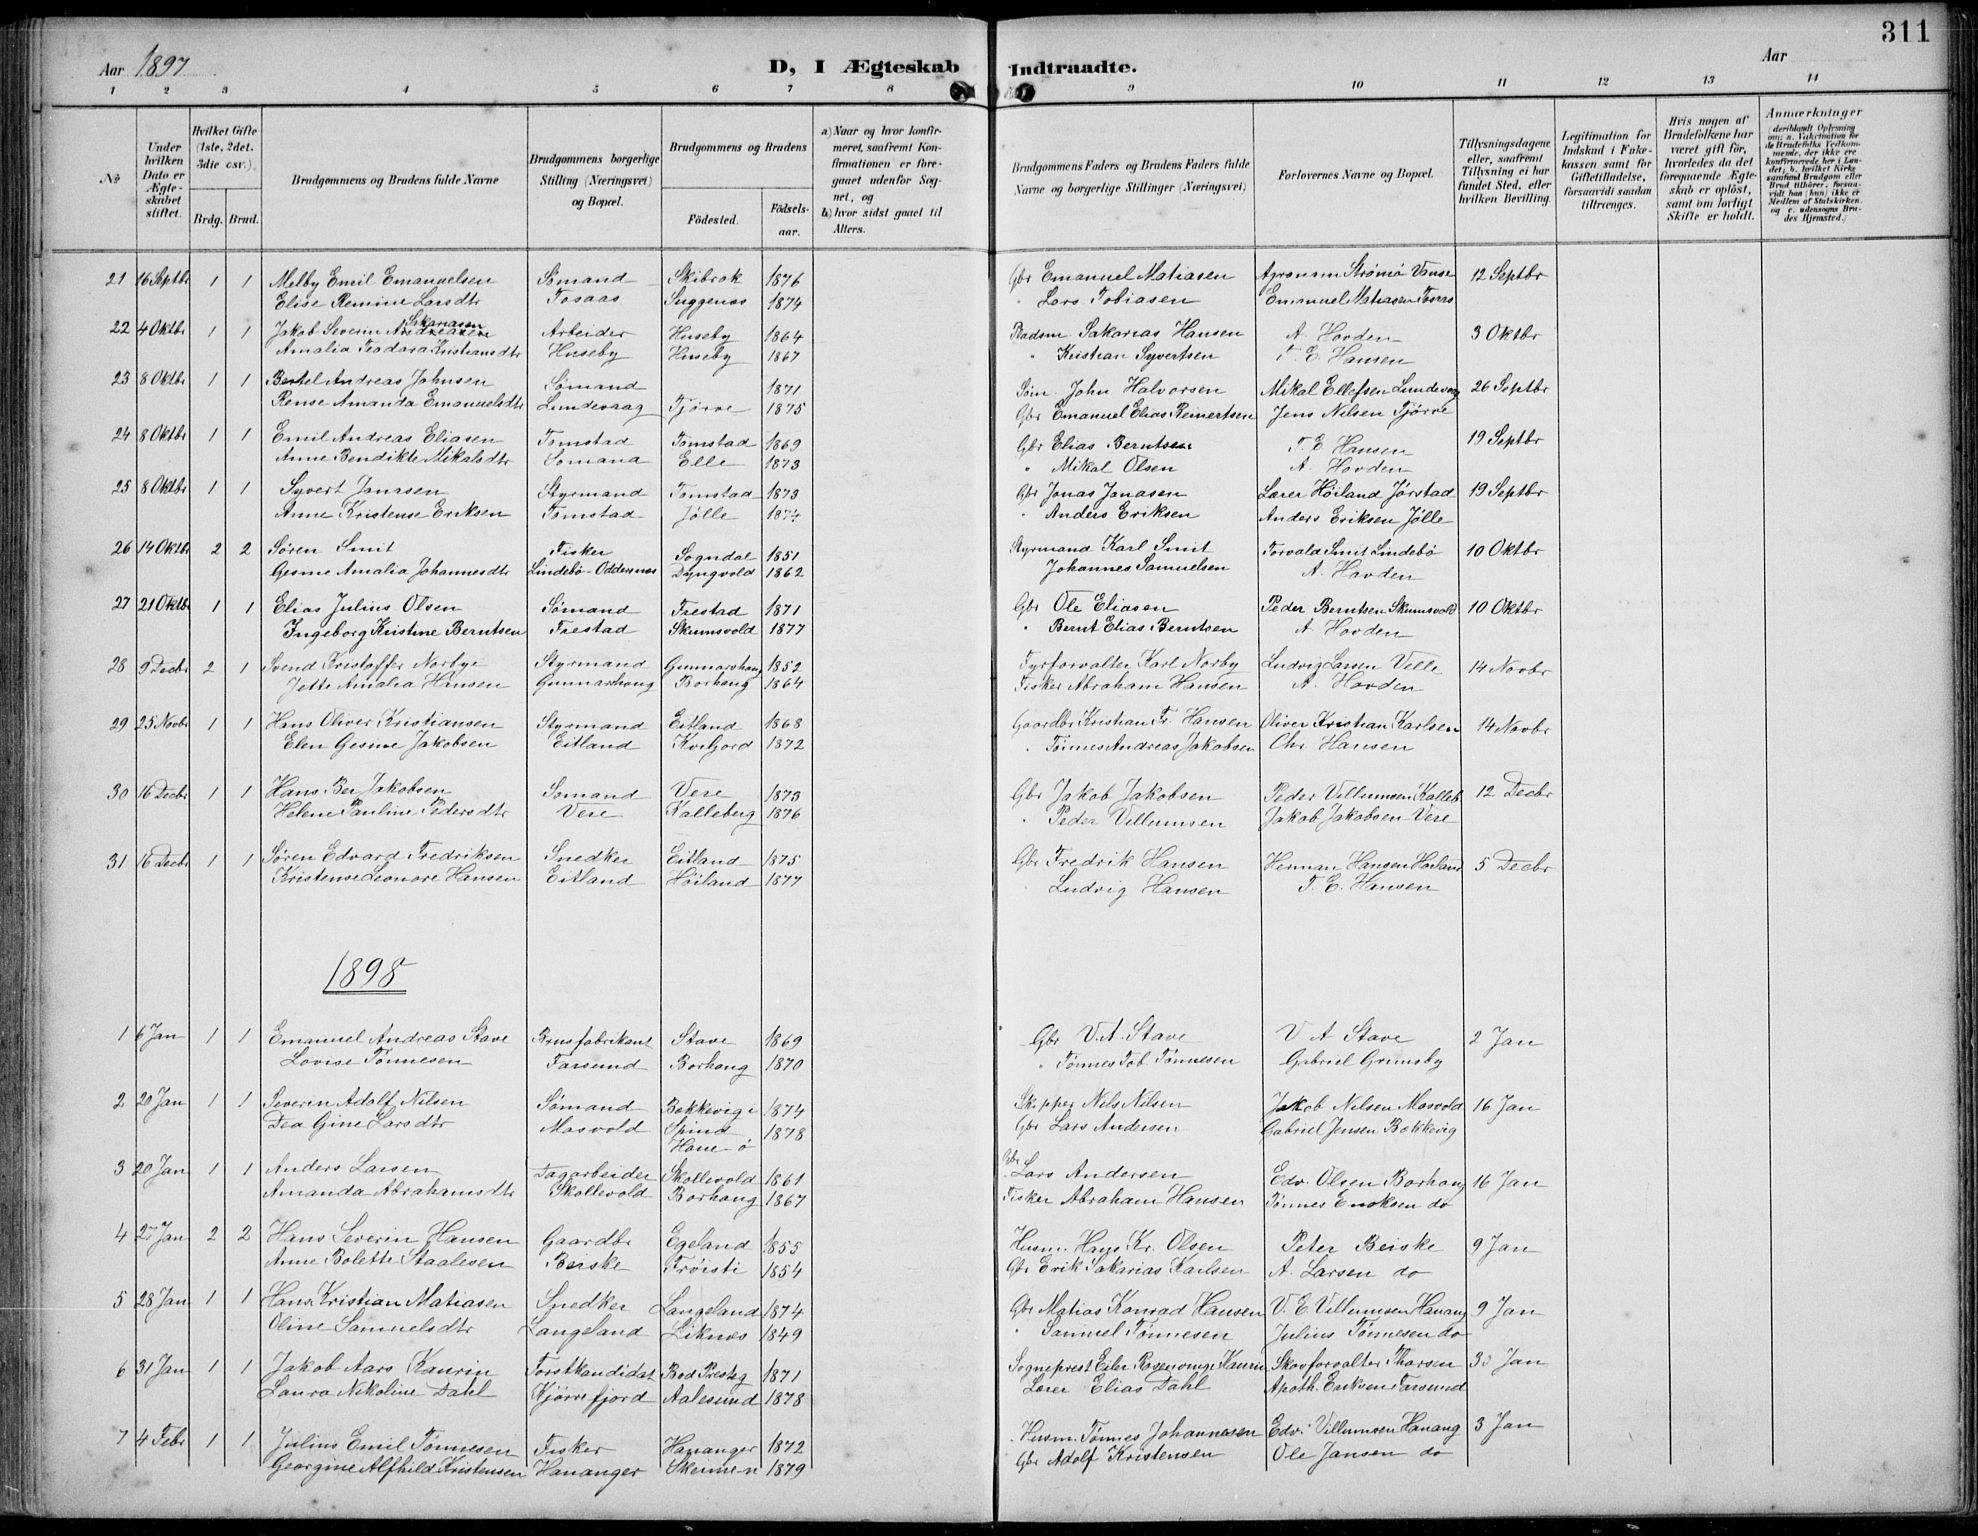 311
Aar 1897
D, I Ægteskab Indtraadte.
Aar
1 2 3 4 5 6 7 8 9 10 11 12 13 14
№
Under hvilken Dato er Ægteskabet stiftet.
Hvilket Gifte (1ste, 2det. 3die osv.).
Brdg. Brud.
Brudgommens og Brudens fulde Navne
Brudgommens borgerlige Stilling (Næringsvei) og Bopæl.
Brudgommens og Brudens
Födested.
Födselsaar.
a) Naar og hvor konfirmeret, saafremt Konfirmationen er foregaaet udenfor Sognet, og
b) hvor sidst gaaet til Alters.
Brudgommens Faders og Brudens Faders fulde Navne og borgerlige Stillinger (Næringsvei)
Forlovernes Navne og Bopæl.
Tillysningsdagene eller, saafremt Tillysning ei har fundet Sted, efter hvilken Bevilling.
Legitimation for Indskud i Enkekassen samt for Giftetilladelse, forsaavidt saadan tiltrænges.
Hvis nogen af Brudefolkene har været gift för, hvorledes da det foregaaende Ægteskab er oplöst, samt om lovligt Skifte er holdt.
Anmærkninger (deriblandt Oplysning om; a. Vakcination for de Brudefolks Vedkommende, der ikke ere konfirmerede her i Landet; b. hvilket Kirkesamfund Brudgom eller Brud tilhörer, forsaavidt han (hun) ikke er Medlem af Statskirken. og c. udensogns Brudes Hjemsted.)
21 16 Septbr 1 1 Melby Emil Emanuelsen Sømand Skibrok 1876 Gbr Emanuel Matiasen Agronom Strømø Vanse 12 Septbr
Elise Remine Larsdtr Tosaas Snggenes 1874 " Lars Tobiasen Emanuel Matiasen Tosaas
22 4 Oktbr 1 1 Jakob Severin Andreasen Sakariasen Arbeider Huseby 1864 Sakarias Hansen A. Hovden 3 Oktbr
Amalia Teodora Kristiansdtr Huseby Huseby 1867 " Kristian Syvertsen T. E. Hansen
23 8 Oktbr 1 1 Bertel Andreas Johnsen Sømand 1871 Søm. John Halvorsen Mikal Ellefsen Lundevag 26 Septbr
Rense Amanda Emanuelsdtr Lundevaag Tjørve 1875 Gbr Emanuel Elias Reinertsen Jens Nilsen Tjørve
24 8 Oktbr 1 1 Emil Andreas Eliasen Tomstad Tomstad 1869 Gbr Elias Berntsen T. E Hansen 19 Septbr
Anne Bendikte Mikalsdtr Sømand Elle 1873 " Mikal Olsen A. Hovden
25 8 Oktbr 1 1 Syvert Janssen Styrmand Tomstad 1873 Gbr Jonas Jonasen Lærer Höiland Jørstad 19 Septbr
Anne Kristense Eriksen Tomstad Jølle 1874 " Anders Eriksen Anders Eriksen Jølle
26 14 Oktbr 2 2 Søren Smit Fisker Sogndal 1851 Styrmand Karl Smit Torvald Smit Lindebö 10 Oktbr
Gesine Amalia Johannesdtr Lindebö - Oddernes Dyngvold 1862 Johannes Samuelsen A. Hovden
27 21 Oktbr 1 1 Elias Julius Olsen Sømand Frestad 1871 Gbr Ole Eliasen Peder Berntsen Skumsvold 10 Oktbr
Ingeborg Kristine Berntsen Frestad Skumsvold 1877 " Bernt Elias Berntsen A. Hovden
28 9 Decbr 2 1 Svend Kristoffer Norbye Styrmand Gunnarshaug 1852 Fyrforvalter Karl Norby Ludvig Larsen Velle 14 Novbr
Jette Amalia Hansen Gunnarshaug Borhaug 1864 Fisker Abraham Hansen A. Hovden
29 25 Novbr 1 1 Hans Oliver Kristiansen Styrmand Eitland 1868 Gaardbr Kristian Fr. Hansen Oliver Kristian Karlsen 14 Novbr
Elen Gesine Jakobsen Eitland Kvifjord 1872 " Tönnes Andreas Jakobsen Chr Hansen
30 16 Decbr 1 1 Hans Ber Jakobsen Sømand Vere 1873 Gbr Jakob Jakobsen Peder Villumsen Kalleb 12 Decbr
Helene Pauline Pedersdtr Vere Kalleberg 1876 " Peder Villumsen Jakob Jakobsen Vere
31 16 Decbr 1 1 Søren Edvard Fredriksen Snedker Eitland 1875 Gbr Fredrik Hansen Herman Hansen Høiland 5 Decbr
Kristense Leonore Hansen Eitland Höiland 1877 Ludvig Hansen T. E. Hansen
1898
1 6 Jan 1 1 Emanuel Andreas Stave Brusfabrikant Stave 1869 Gbr V. A. Stave V. A Stave 2 Jan
Lovise Tønnesen Farsund Borhaug 1870 " Tønnes Tob. Tönnesen Gabriel Grimsby
2 20 Jan 1 1 Severin Adolf Nilsen Sømand Bækkevig i 1874 Skipper Nils Nilsen Jakob Nilsen Mosvold 16 Jan
Dea Gine Larsdtr Mosvold Spind 1878 Gbr Lars Andersen Gabriel Jensen Bækkevig
Haue-ö
3 20 Jan 1 1 Anders Larsen Dagarbeider Skollevold 1861 Gbr Lars Andersen Edv. Olsen Borhaug 16 Jan
Amanda Abrahamsdtr Skollevold Borhaug 1867 Fisker Abraham Hansen Tønnes Enoksen do
4 27 Jan 2 2 Hans Severin Hansen Gaardbr Egeland 1855 Husm. Hans Kr. Olsen Peter Beiske 9 Jan
Anne Bolette Staalesen Beiske Frøisti 1854 Gbr Erik Sakarias Karlsen A. Larsen do
5 28 Jan 1 1 Hans Kristian Matiasen Snedker Langeland 1874 Gbr Matias Konrad Hansen V. E. Villumsen Hanang 9 Jan
Oline Samuelsdtr Langeland Liknes 1849 " Samuel Tønnesen Julius Tønnesen do
6 31 Jan 1 1 Jakob Aars Kaurin Forstkandidat Bod Prestg 1871 Sogneprest Eiler Rosenvinge Kaurin Skovforvalter Tharsen 30 Jan
Laura Nikoline Dahl Kjørrefjord Aalesund 1878 Lærer Elias Dahl Apoth. Eriksen Farsund
7 4 Febr 1 1 Julius Emil Tønnesen Fisker Hananger 1872 Husm. Tønnes Johannesen Edv. Villumsen Hanang 3 Jan
Georgine Alfhild Kristensen Hananger Skeimen 1879 Gbr Adolf Kristensen Ole Jansen do